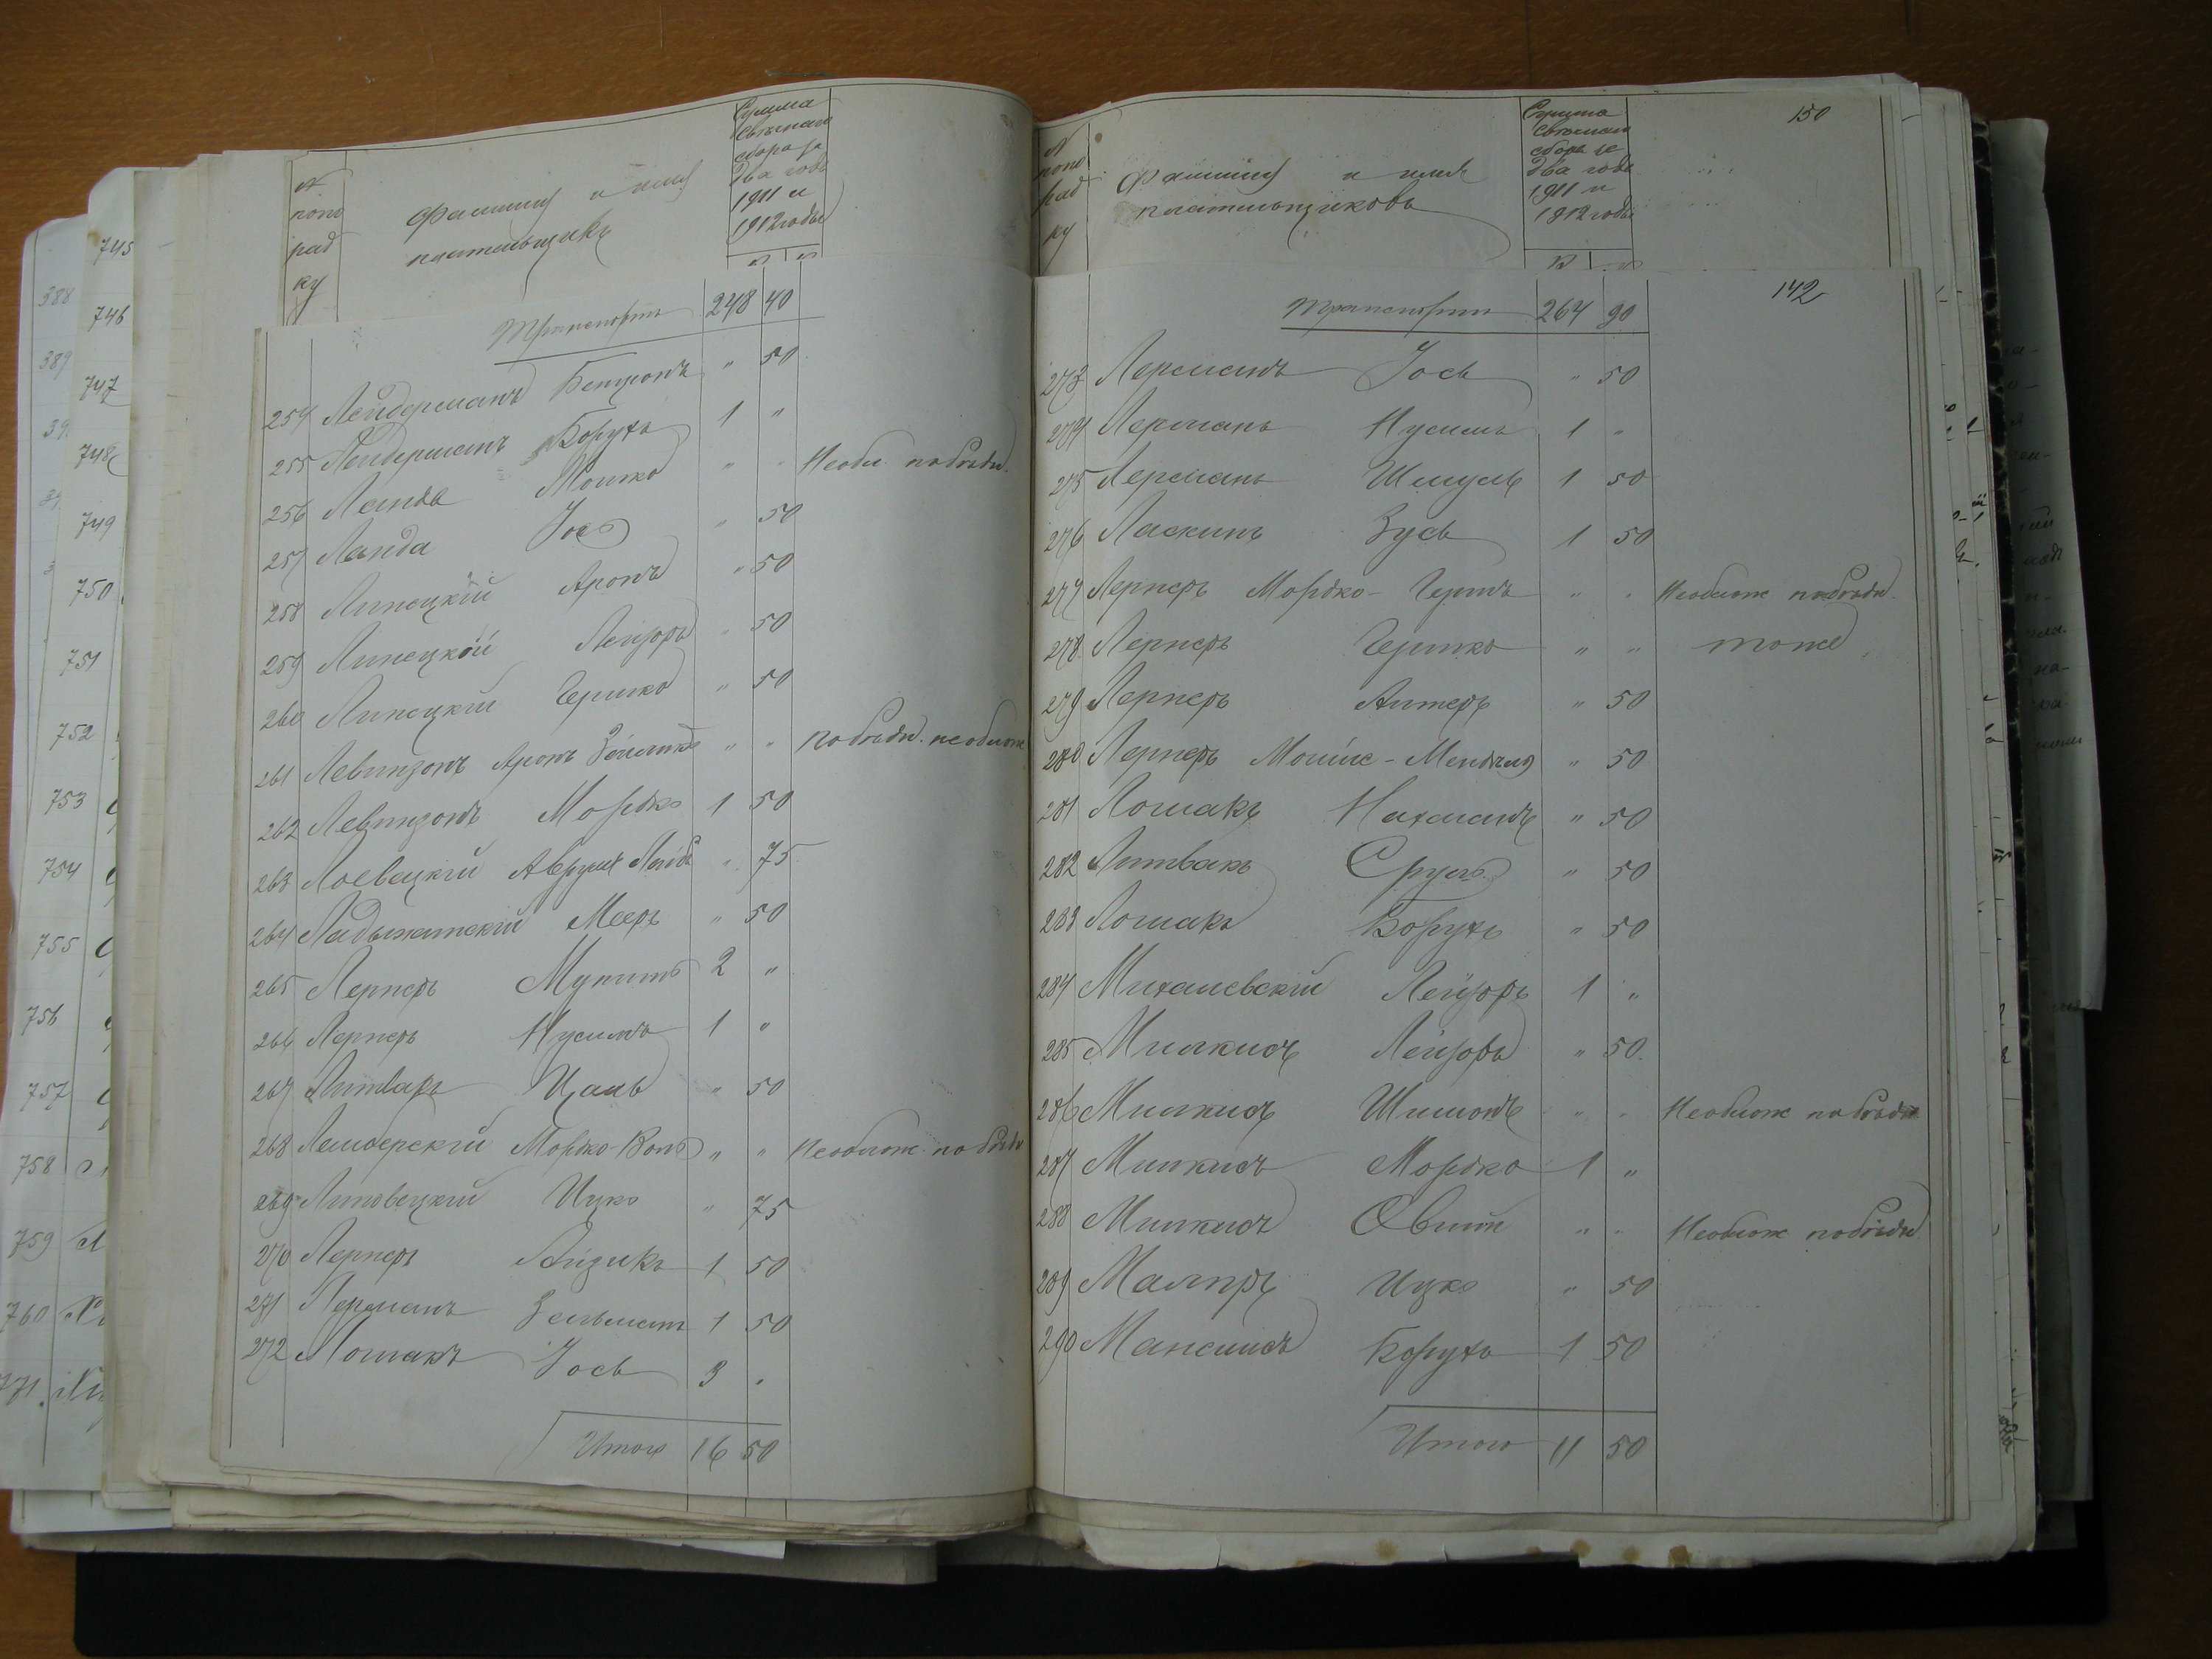 № поряд ку
Фамилия и имя плательщика
Сумма свечнаго сбора за два года 1911 и 1912 годы
Транспортъ 248 40
254 Лейдерманъ Бенционъ " 50
255 Лейдерманъ Борухъ 1 "
256 Ланда Мошко " " Необл. по бѣдн.
257 Ланда Іось " 50
258 Линецкій Аронъ " 50
259 Линецкій Лейзоръ " 50
260 Линецкій Гершко " 50
261 Левинзонъ Аронъ " " по бѣдн. необлож
262 Левинзонъ Мордко 1 50
263 Лоевецкій Аврумъ Лейбъ " 75
264 Ладыженскій Мееръ " 50
265 Лернеръ 2 "
266 Лернеръ Нусинъ 1 "
267 Литваръ Цаль " 50
268 Лемберскій Мордко-Волъ " " Необлож. по бѣдн
269 Липовецкій Ицко " 75
270 Лернеръ Айзикъ 1 50
271 Лерманъ Зельманъ 1 50
272 Лошакъ Іось 3 "
Итого 16 50
150
№ поряд ку
Фамилия и имя плательщиковъ
Сумма свечнаго сбора за два года 1911 и 1912 годы
142
Транспортъ 264 90
273 Лерманъ Іось " 50
274 Лерманъ Нусинъ 1 "
275 Лерманъ Шмуль 1 50
276 Ласкинъ Зусь 1 50
277 Лернеръ Мордко-Гершъ " " Необлож по бѣдн.
278 Лернеръ Гершко " " тоже
279 Лернеръ Алтеръ " 50
280 Лернеръ Мойше-Мендель " 50
281 Лошакъ Нахманъ " 50
282 Литвакъ Сруль " 50
283 Лошакъ Борухъ " 50
284 Михалевскій Лейзоръ 1 "
285 Милкисъ Лейзоръ " 50
286 Милкисъ Шимонъ " " Необлож по бѣдн
287 Милкисъ Мордко 1 "
288 Милкисъ " " Необлож по бѣдн
289 Маляръ Ицко " 50
290 Борухъ 1 50
Итого 11 50
388
389
745
746
747
748
749
750
751
752
753
754
755
756
757
758
759
760